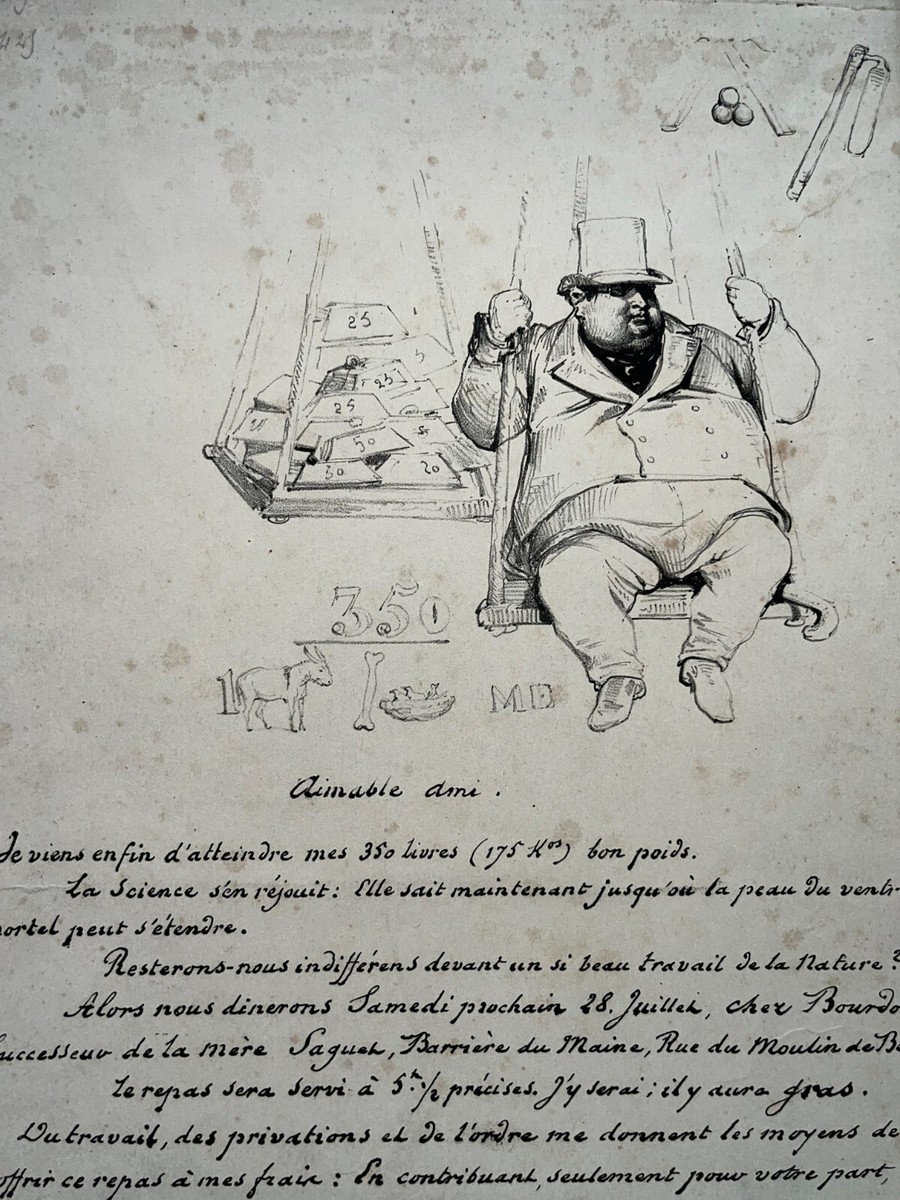 425
25
5
25
25
50
5
30
20
350
1 ME
Aimable ami.
Je viens enfin d'atteindre mes 350 livres (175 K^os) bon poids.
La Science s'en réjouit: Elle sait maintenant jusqu'où la peau du ventr
ortel peut s'étendre.
Resterons-nous indifférens devant un si beau travail de la Nature?
Alors nous dinerons Samedi prochain 28. Juillet, chez Bourdo
uccesseur de la mère Saguet, Barrière du Maine, Rue du Moulin de Be
Le repas sera servi à 5^h. 1/2 précises. J'y serai; il y aura gras.
Du travail, des privations et de l'ordre me donnent les moyens de
offrir ce repas à mes frais: En contribuant, seulement pour votre part,